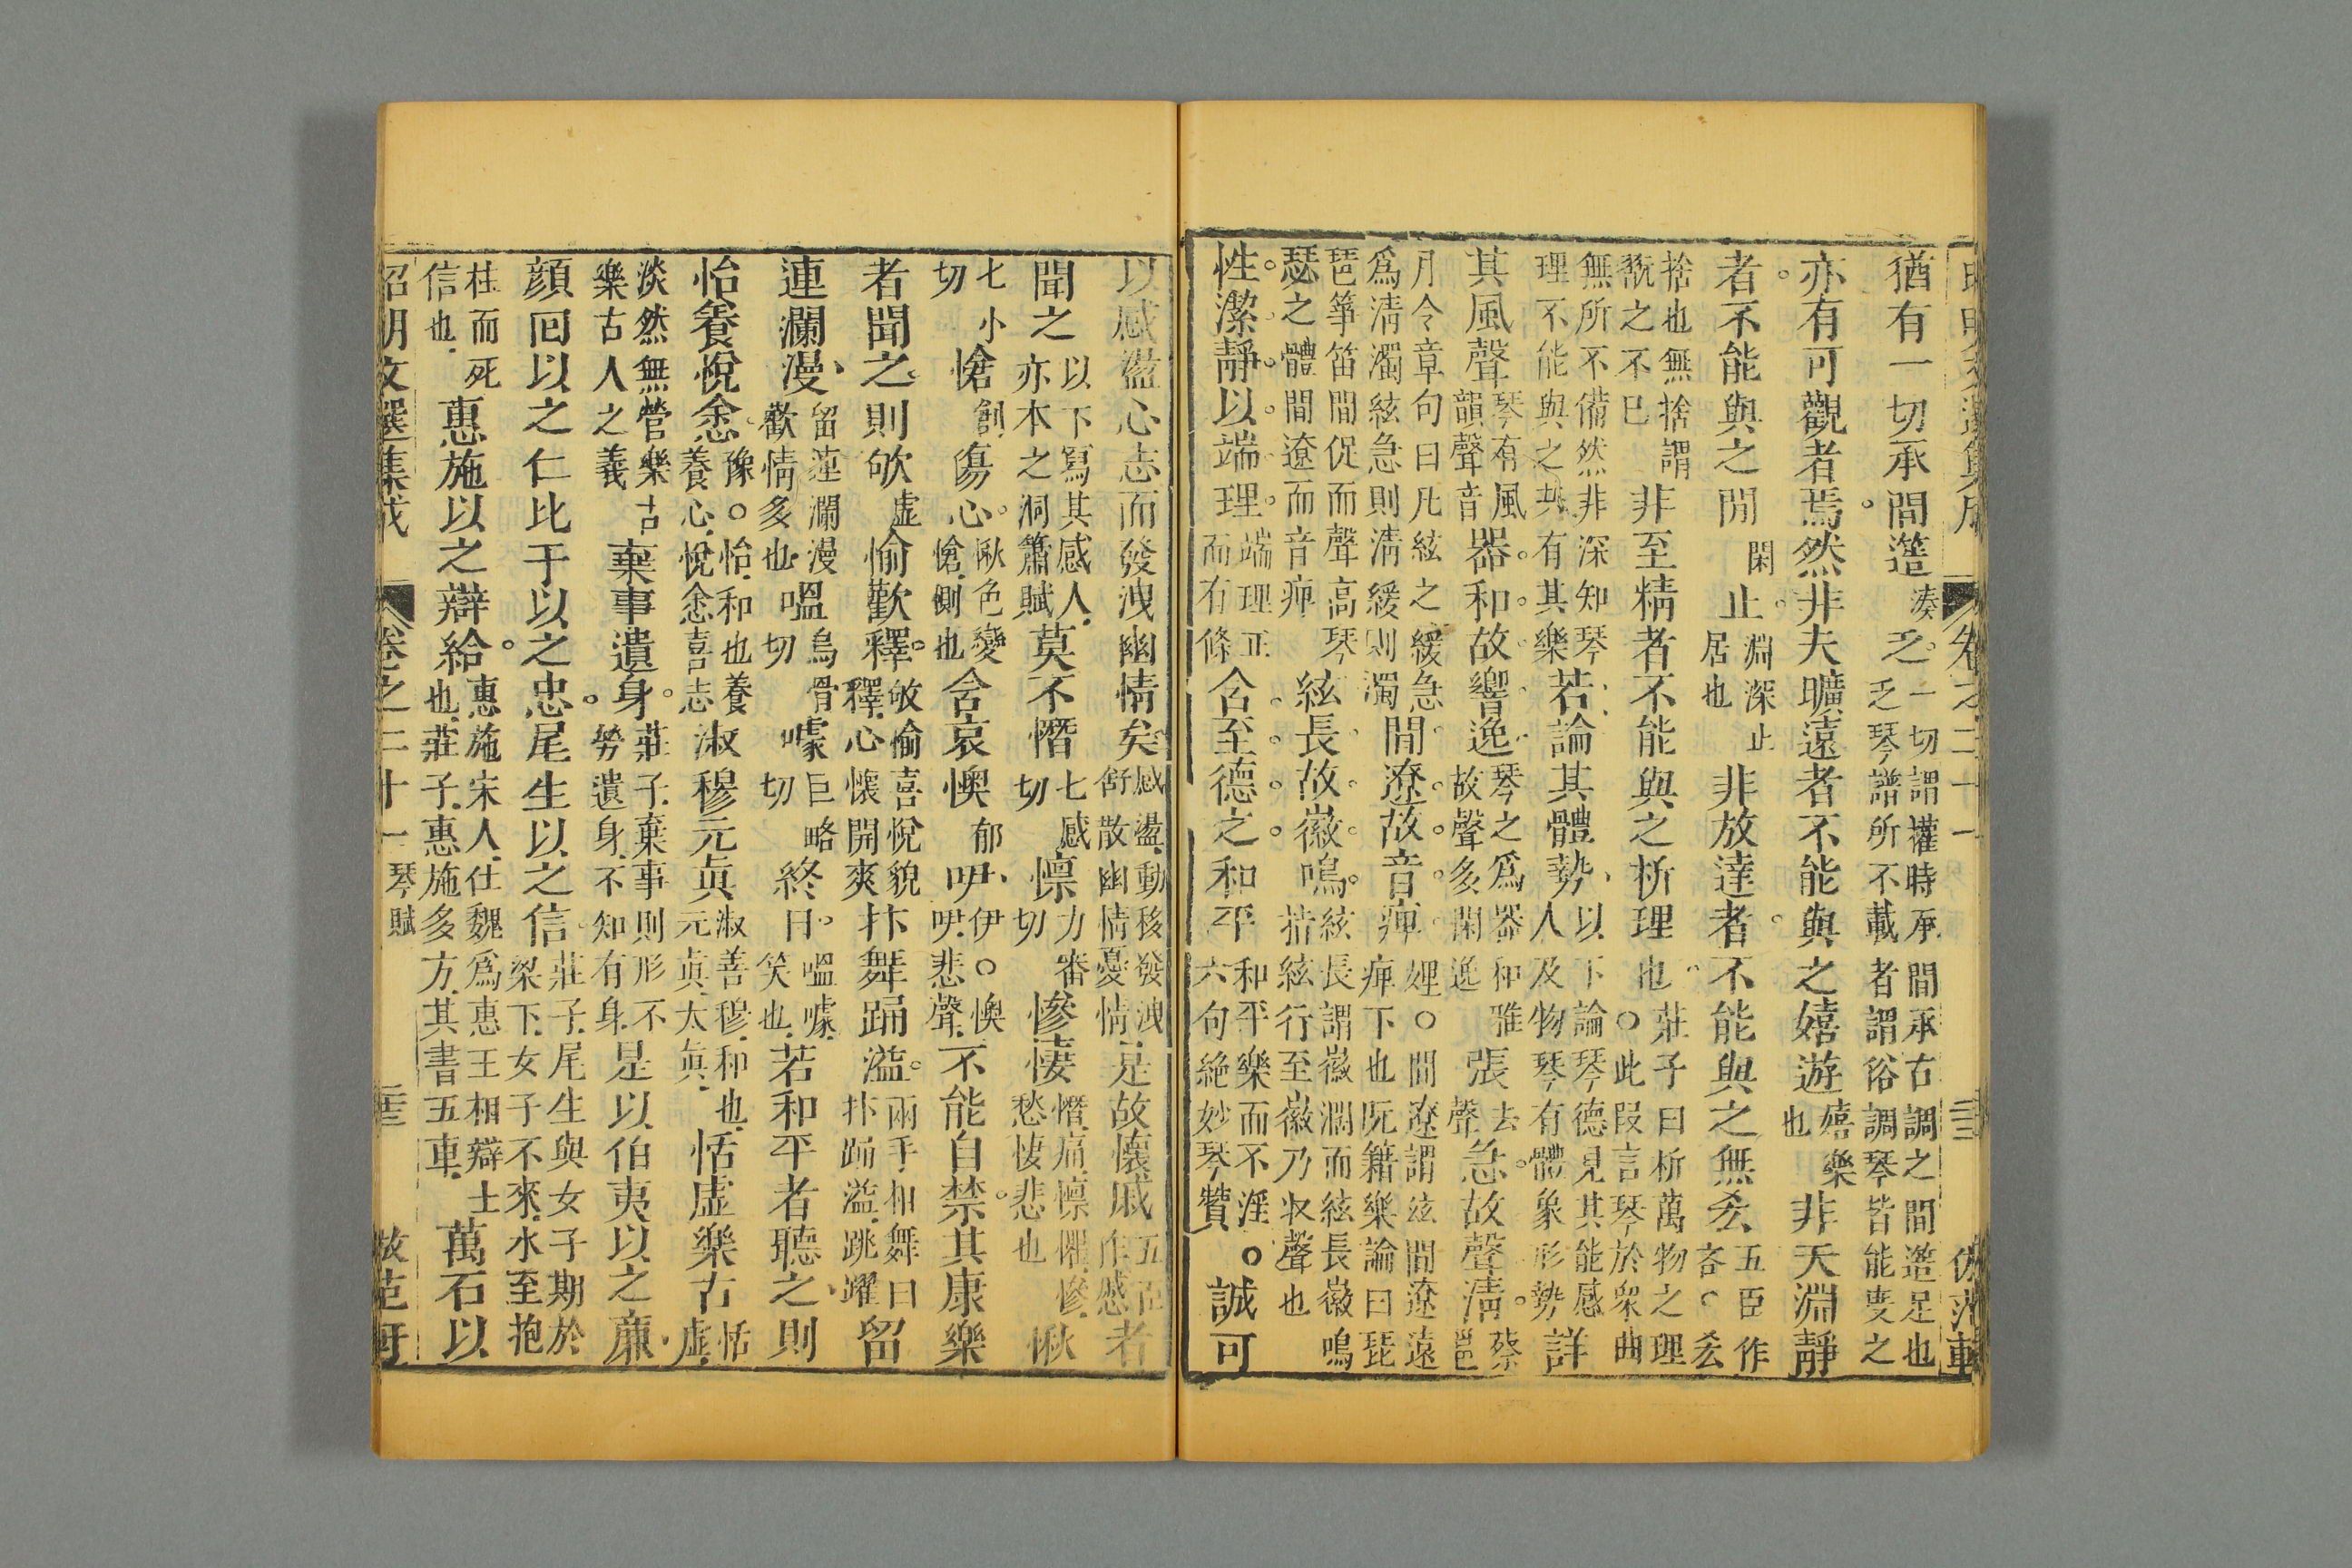 昭明文選集成 卷之二十一 三 仿范軒
猶有一切承間簉湊乏。一切謂權時承間承古調之間簉足也
乏琴譜所不載者謂俗調琴皆能叓之
亦有可觀者焉。然非夫曠遠者不能與之嬉遊嬉樂也非天淵靜
者。不能與之閒閑止。淵深止居也非放達者。不能與之無㕁五臣作吝。㕁
捨也無捨謂翫之不已非至精者不能與之析理也。莊子曰析萬物之理
此叚言琴於衆曲
無所不備然非深知琴
理不能與之共有其樂若論其體勢、以下論琴德見其能感人及物琴有體象形勢詳
其風聲琴有風韻聲音器。和。故響逸琴之爲器和雅故聲多閑逸張去聲急。故聲淸。蔡邕
月令章句曰凡絃之緩急
爲淸濁絃急則淸緩則濁間遼。故。音。庳。婢。間遼謂絃間遼遠
庳下也阮籍樂論曰琵
琶箏笛間促而聲高琴
瑟之體間遼而音庳絃長。故。徽。鳴。絃長謂徽濶而絃長徽鳴
揩絃行至徽乃収聲也
性。潔。靜。以。端。理。端理正而有條含。至。德。之。和平和平樂而不淫。六句絶妙琴贊誠可
以感盪心志而發洩幽情矣感盪、動移發洩
舒散幽情憂情、是故懷戚五臣作慼者
聞之以下寫其感人、亦本之洞簫賦莫不憯七感切懍力審切慘悽憯、痛、懍、懼、慘、愁悽悲也愀
七小切愴創、傷心。愀色變愴、惻也含哀懊郁咿、伊。懊咿、悲聲、不能自禁。其康樂
者聞之則欨虛愉歡釋。欨愉喜悅貌釋、心懷開爽抃舞踊溢。兩手相舞曰抃踊溢、跳躍留
連瀾漫、留蓮瀾漫歡情多也嗢烏骨切噱巨略切終日。嗢噱、笑也、若和平者聽之、則
怡養悅悆豫。怡、和也養養心、悅悆喜志淑穆元眞淑善穆、和也、元眞、太眞、恬虛樂古恬虛、
淡然無營樂古樂古人之義棄事遺身。莊子、棄事則形不勞遺身、不知有身是以伯夷以之廉
顔回以之仁比干以之忠。尾生以之信。莊子、尾生與女子期於梁下、女子不來、水至抱
柱而死信也、惠施以之辯給。惠施宋人、仕魏爲惠王相辯士也、莊子、惠施多方、其書五車、萬石以
昭明文選集成 卷之二十一 琴賦 三